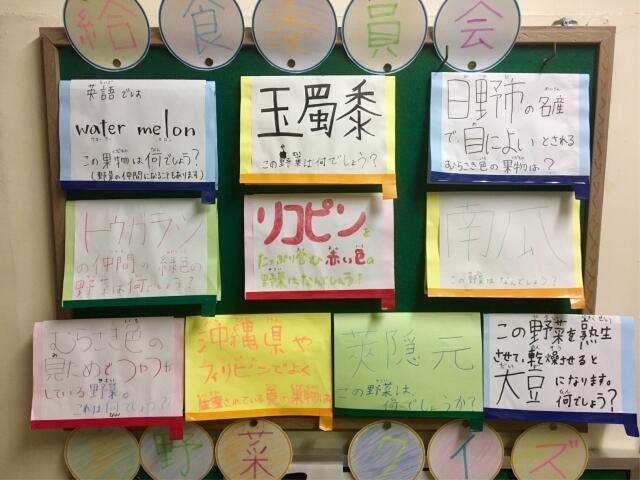 給食委員会
英語では
えいご
water melon
ウォーター メロン
この果物は何でしょう?
くだもの なん
(野菜の仲間になることもあります)
玉蜀黍
この野菜は何でしょう?
日野市の名産
で、目によいとされる
むらさき色の果物は?
トウガラシ
の仲間の緑色の
野菜は何でしょう?
リコピンを
たっぷり含む赤い色の
野菜はなんでしょう?
南瓜
この野菜はなんでしょう?
むらさき色の
見ためとつやつや
している野菜。
これは何でしょう?
沖縄県や
フィリピンでよく
生産されている黄の果物は
莢隠元
この野菜は、
何でしょうか?
この野菜を熟生
させて、乾燥させると
大豆になります。
何でしょう?
野菜クイズ